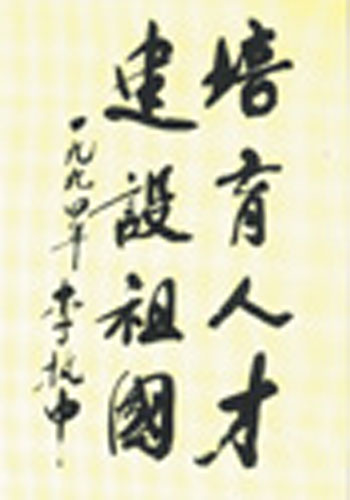 培育人才
建設祖國
一九九四年 李放中